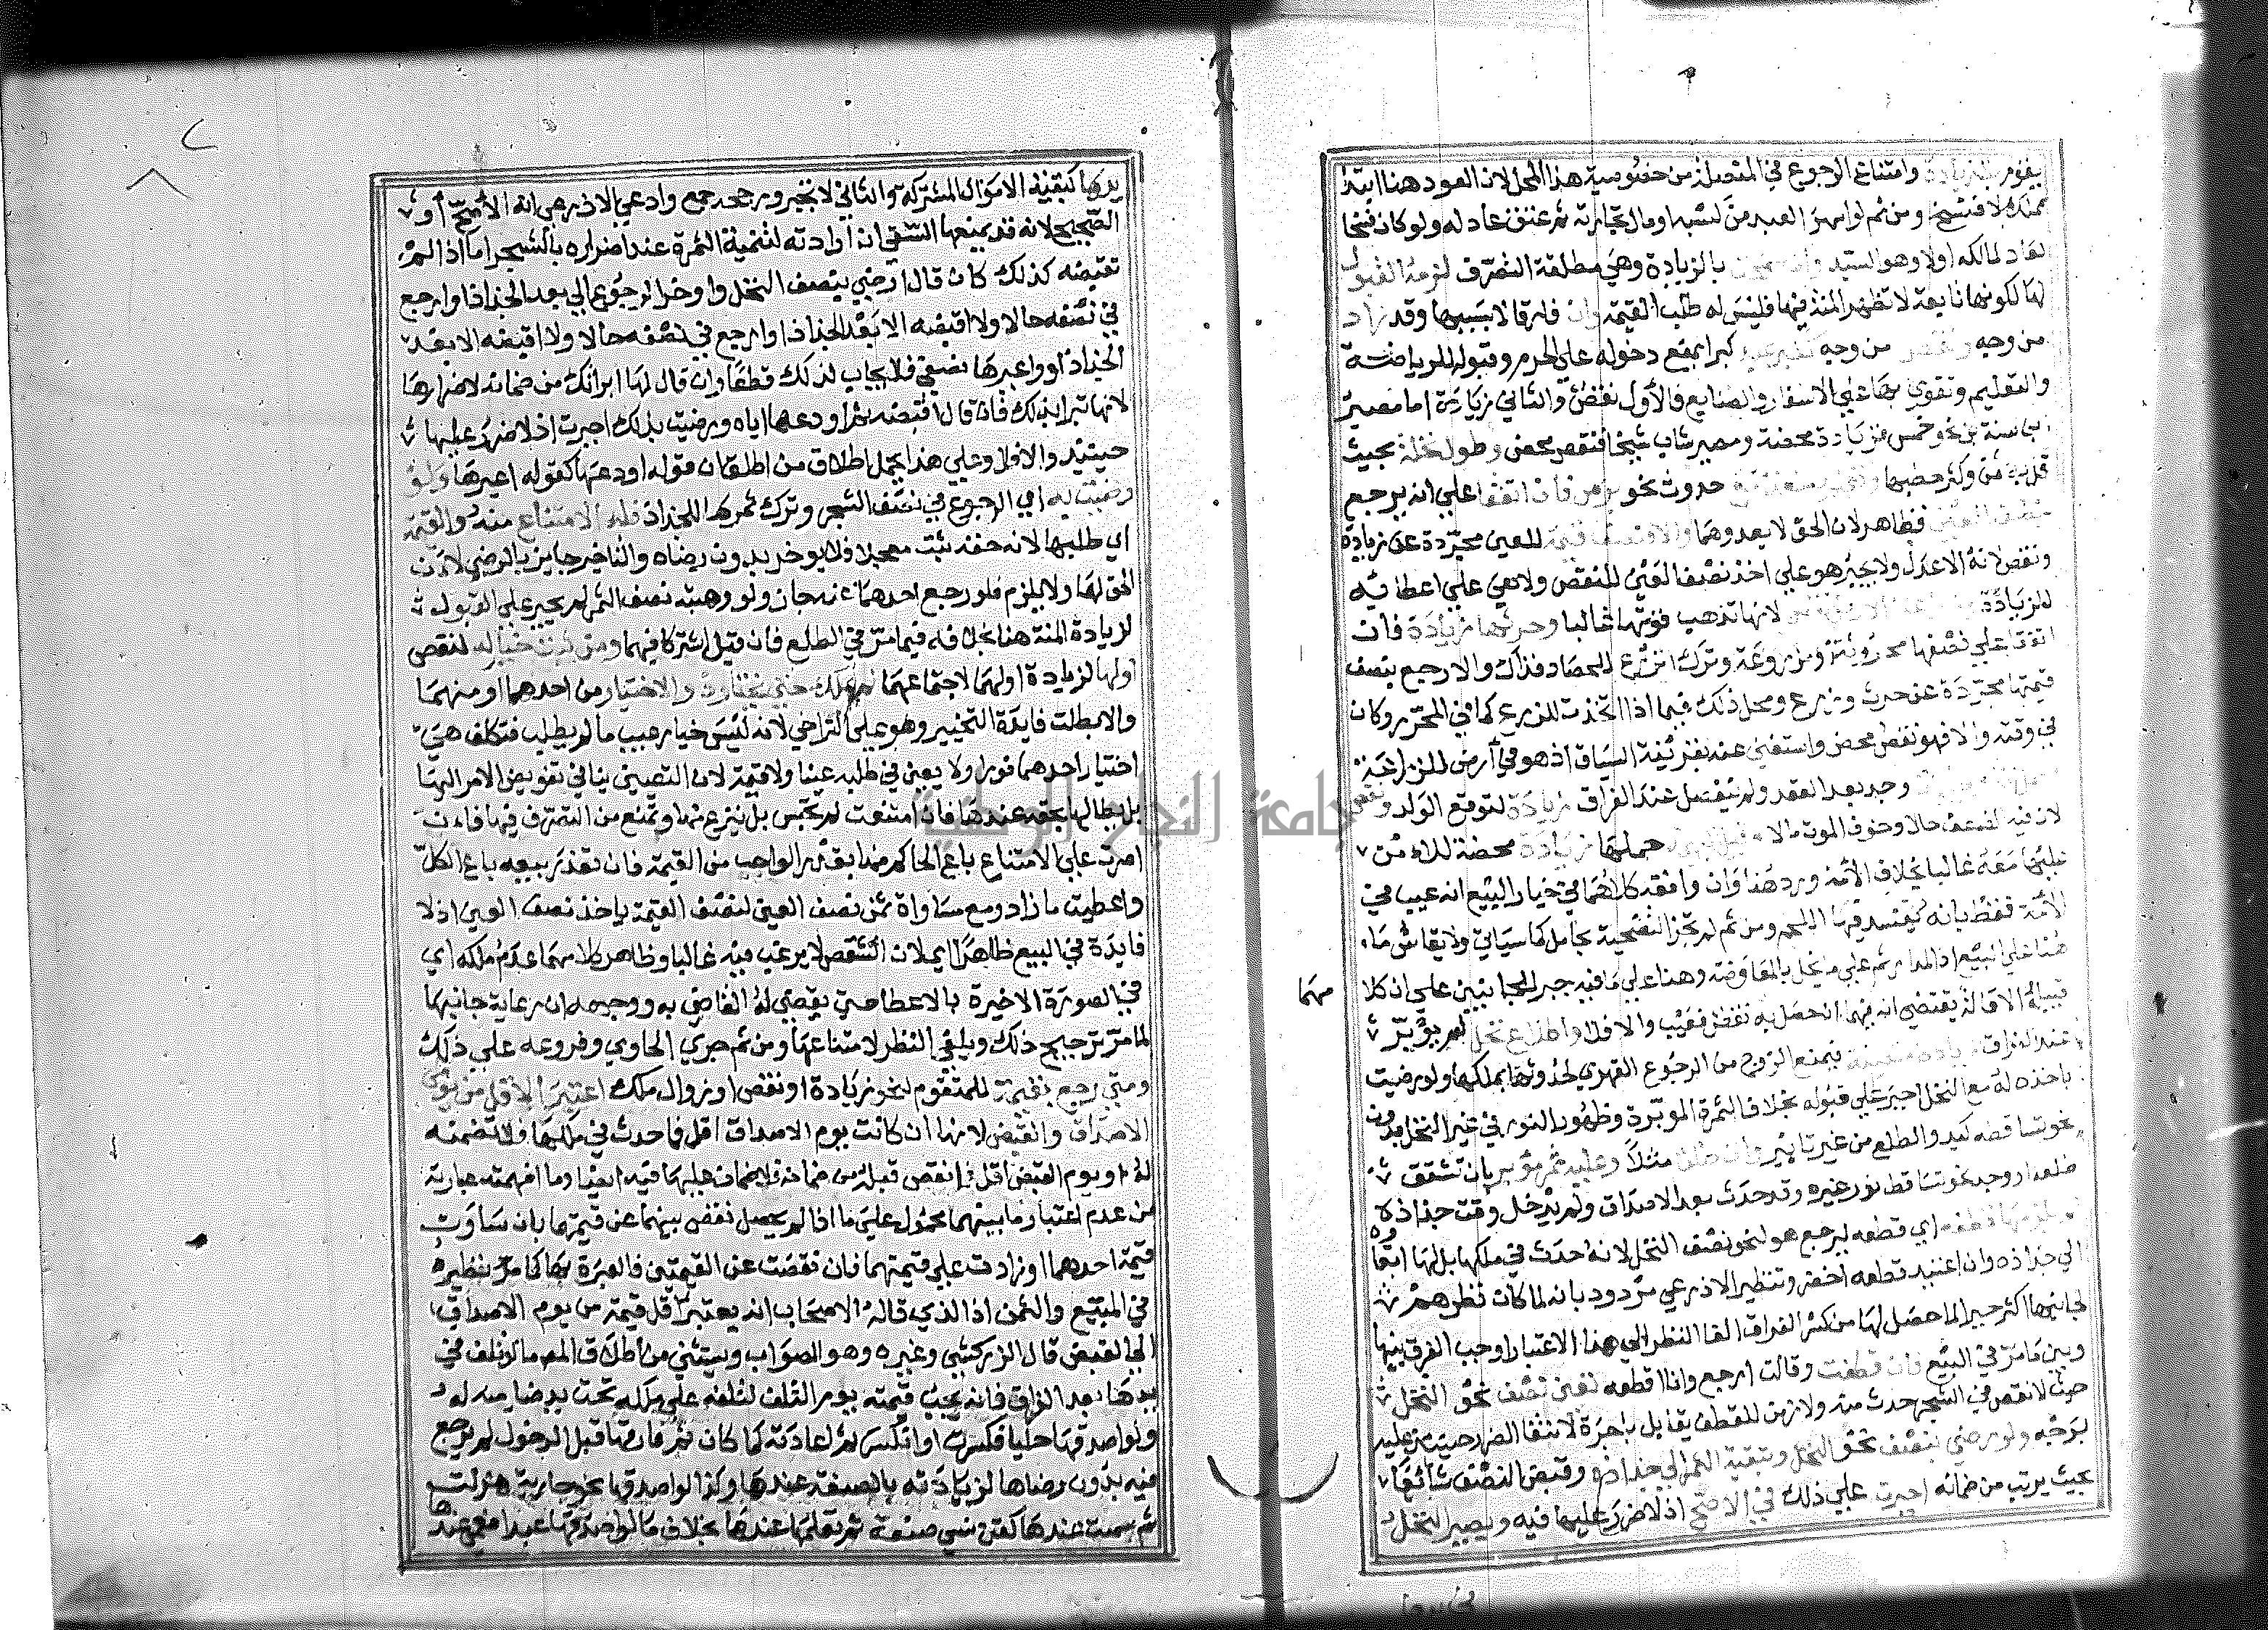 وامتناع الرجوع في المتصلة من خصوصية هذا المحل لان العود هنا ابتدا
ومن ثم لو امهر العبد من كسبه او مال تجارته ثم عتق عاد له ولو كان فسخا
لعاد لمالكه اولا وهو السيد بالزيادة وهي مطلقة التصرف لزمه القبول
لها لكونها تابعة لا تظهر المنة فيها فليس له طلب القيمة وان فارقا لا بسببها وقد زاد
من وجه ونقص من وجه كبرا يمنع دخوله على الحرم وقبوله للرياضة
والتعليم وتقوى بها على الاسفار والصنايع فالاول نقص والثاني زيادة اما مصير
ابن سنة بن نحو خمس فزيادة محضة ومصير شاب شيخا فنقص محض وطول نخلة بحيث
قل به ثمن وكثر حطبها حدوث نحو برص فان اتفقا على انه يرجع
فظاهر لان الحق لا يعدوهما والا فنصف قيمة للعين مجردة عن زيادة
ونقص لانه الاعدل ولا يجبر هو على اخذ نصف العين للنقص ولا هي على اعطائه
للزيادة لانها تذهب قوتها غالبا وحرثها زيادة فان
اتفقا على نصفها محروثة ومزروعة وترك الزرع للحصاد فذاك والا رجع بنصف
قيمتها مجردة عن حرث وزرع ومحل ذلك فيما اذا اتخذت للزرع كما في المحرر وكان
في وقته والا فهو نقص محض واستغنى عنه بقرينة السياق اذ هو في ارض للزراعة
وجد بعد العقد ولم ينفصل عند الفراق زيادة لتوقع الولد ونقص
لان فيه الضعف حالا وخوف الموت مالا حملها زيادة محضة للامن
عليها معه غالبا بخلاف الامة ورد هذا وان وافقه كلامهما في خيار البيع انه عيب في
الامة فقط بانه يفسد فيها اللحم ومن ثم لم تجز التضحية بحامل كما سياتي ولا يقاس ما
هنا على البيع اذ المدار ثم على ما يخل بالمعاوضة وهنا على ما فيه جبر للجانبين على ان كلا
مهما
الاقالة يقتضي انه فيهما ان حصل به نقص فعيب والا فلا واطلاع نخل لم يؤبر
عند الفراق زيادة متصلة فيمنع الزوج من الرجوع القهري لحدوثها بملكها ولو رضيت
باخذه له مع النخل اجبر على قبوله بخلاف الثمرة المؤبرة وظهور النور في غير النخل بدون
نحو تساقطه كبدو الطلع من غير تابير وان طلق مثلا وعليه ثمر مؤبر بان تشقق
طلعه او وجد نحو تساقط نور غيره وقد حدث بعد الاصداق ولم يدخل وقت جذاذه
لم يلزمها قطفه اي قطعه ليرجع هو لنحو نصف النخل لانه حدث في ملكها بل لها ابقاؤه
الى جذاذه وان اعتيد قطعه اخضر وتنظير الاذرعي مردود بانه لما كان نظرهم
لجانبها اكثر جبرا لما حصل لها من كسر الفراق الغا النظر الى هذا الاعتبار اوجب الفرق بينها
وبين ما مر في البيع فان قطفت وقالت ارجع وانا اقطعه تعين نصف نحو النخل
حيث لا نقص في الشجر حدث منه ولا زمن للقطف يقابل باجرة لانتفا الضرر حينئذ عليه
بوجه ولو رضي بنصف نحو النخل وتبقية الثمر الى جذاذه وقبض النصف شائعا
بحيث يرتب من ضمانه اجبرت على ذلك في الاصح اذ لا ضرر عليها فيه ويصير النخل
يدها كبقية الاموال المشتركة والثاني لا تجبر ورجحه جمع وادعى الاذرعي انه الاصح او
الصحيح لانه قد يمنعها السقي ان ارادته لتنمية الثمرة عند اضراره بالشجر اما اذا لم
تقبضه كذلك كان قال ارضى بنصف النخل واوخر الرجوع الى بعد الجذاذ او ارجع
في نصفه حالا ولا اقبضه الا بعد الجذاذ او ارجع في نصفه حالا ولا اقبضه الا بعد
الجذاذ او اعيرها نصفي فلا يجاب لذلك قطعا وان قال لها ابراتك من ضمانه لاضرارها
لانها تبرا بذلك فان قال اقبضه ثم اودعها اياه ورضيت بذلك اجبرت اذ لا ضرر عليها
حينئذ والا فلا وعلى هذا يحمل اطلاق من اطلق ان قوله اودعتها كقوله اعيرها ولو
رضيت به اي الرجوع في نصف الشجر وترك ثمرها للجذاذ فله الامتناع منه والقيمة
اي طلبها لانه حقه ثبت معجلا فلا يوخر بدون رضاه والتاخير جايز بالرضى لان
الحق لها ولا يلزم فلو رجع احدهما عنه جاز ولو وهبته نصف الثمر لم يجبر على القبول
لزيادة المنة هنا بخلافه فيما مر في الطلع فان قبل اشتركا فيهما ومن ثبت خيار له لنقص
اولها لزيادة او لهما لاجتماعهما لم يملك حتى يختار ذو الاختيار من احدهما او منهما
والا بطلت فايدة التخيير وهو على التراخي لانه ليس خيار عيب ما لم يطلب فتكلف هي
اختيار احدهما فورا ولا يعين في طلبه عينا ولا قيمة لان التعيين ينافي تفويض الامر اليها
بل يطالبها بحقه عندها فان امتنعت لم تحبس بل ينزع منها وتمنع من التصرف فيها فان
اصرت على الامتناع باع الحاكم منها بقدر الواجب من القيمة فان تعذر بيعه باع الكل
واعطيت ما زاد ومع مساواة ثمن نصف العين لنصف القيمة ياخذ نصف العين اذ لا
فايدة في البيع ظاهرا اي لان الشقص لا يرغب فيه غالبا وظاهر كلامهما عدم ملكه اي
في الصورة الاخيرة بالاعطا حتى يقضي له القاضي به ووجهه ان رعاية جانبها
لما مر ترجيح ذلك ويلغي النظر لامتناعها ومن ثم جرى الحاوي وفروعه على ذلك
ومتى رجع بقيمة للمتقوم لنحو زيادة او نقص او زوال ملك اعتبر الاقل من يومي
الاصداق والقبض لانها ان كانت يوم الاصداق اقل فما حدث في ملكها فلا تضمنه
له او يوم القبض اقل فما نقص قبله من ضمانه فلا ضمان عليها فيه ايضا وما افهمته عبارته
من عدم اعتبار ما بينهما محمول على ما اذا لم يحصل نقص بينهما عن قيمتهما بان ساوت
قيمة احدهما او زادت على قيمتهما فان نقصت عن القيمتين فالعبرة بها كما مر بنظيره
في المبيع والثمن اذ الذي قاله الاصحاب انه يعتبر اقل قيمة من يوم الاصداق
الى القبض قال الزركشي وغيره وهو الصواب ويستثنى من اطلاق المص ما لو تلف في
يدها بعد الفراق فانه يجب قيمته يوم التلف لتلفه على ملكه تحت يد ضامنه له
ولو اصدقها حليا فكسرته او انكسر ثم اعادته كما كان ثم فارقها قبل الدخول لم يرجع
فيه بدون رضاها لزيادته بالصنعة عندها وكذا لو اصدقها نحو جارية هزلت
ثم سمنت عندها كقن نسي صنعة ثم تعلمها عندها بخلاف ما لو اصدقها عبدا فعمي عندها